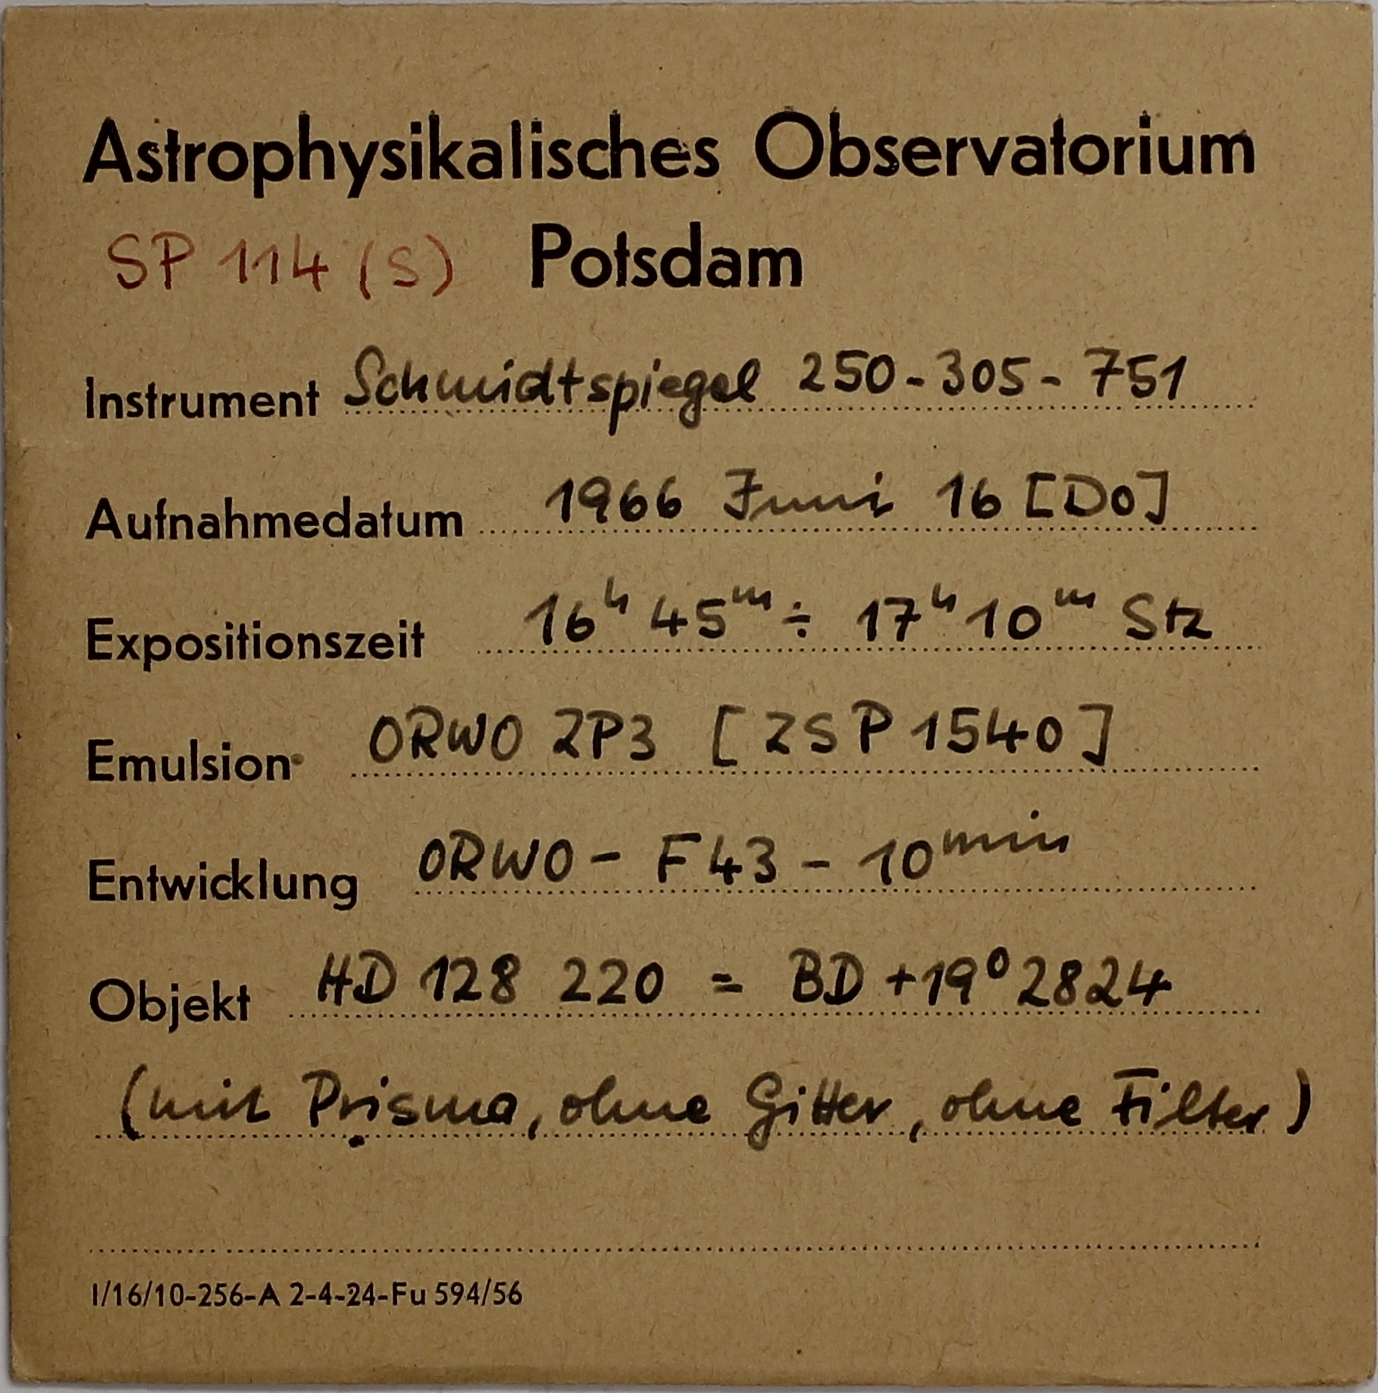 Astrophysikalisches Observatorium
SP 114 (S) Potsdam
Instrument Schmidtspiegel 250-305-751
Aufnahmedatum 1966 Juni 16 [Do]
Expositionszeit 16ʰ 45ᵐ ÷ 17ʰ 10ᵐ Stz
Emulsion ORWO ZP3 [ZSP 1540]
Entwicklung ORWO - F43 - 10ᵐⁱⁿ
Objekt HD 128 220 = BD +19° 2824
(mit Prisma, ohne Gitter, ohne Filter)
I/16/10-256-A 2-4-24-Fu 594/56